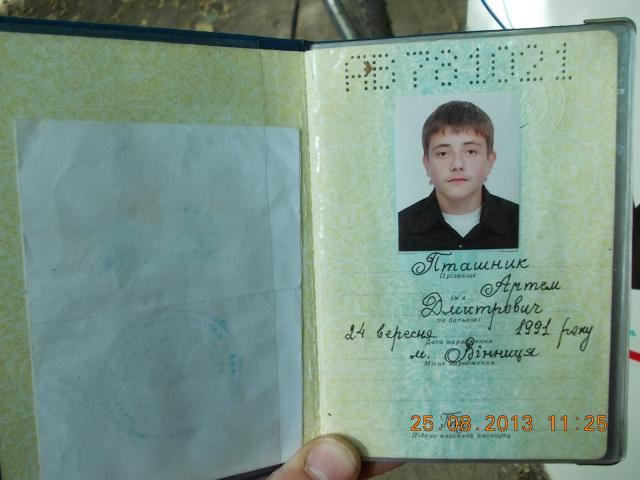 АВ781021
Пташник
Прізвище
Артем
ім'я
Дмитрович
по батькові
24 вересня 1991 року
Дата народження
м. Вінниця
Місце народження
25.08.2013 11:25
Підпис власника паспорта